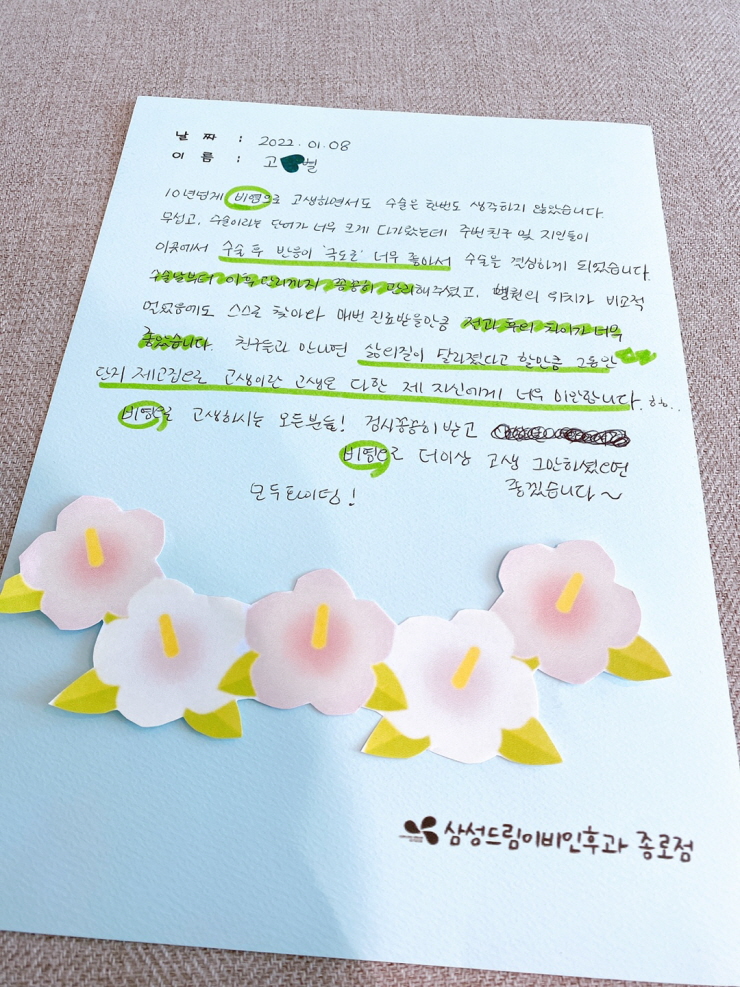 날 짜 : 2022. 01. 08
이 름 : 고 별
10년넘게 비염으로 고생하면서도 수술은 한번도 생각하지 않았습니다.
무섭고, 수술이라는 단어가 너무 크게 다가왔는데 주변 친구 및 지인들이
이곳에서 수술 후 반응이 '극도로' 너무 좋아서 수술을 결심하게 되었습니다.
수술날부터 이후 관리까지 꼼꼼히 관리해주셨고, 병원의 위치가 비교적
멀었음에도 스스로 찾아와 매번 진료받을만큼 전과 후의 차이가 너무
좋았습니다. 친구들과 만나면 삶의질이 달라졌다고 할만큼 그동안
단지 제고집으로 고생이란 고생은 다한 제 자신에게 너무 미안합니다. ㅎㅎ..
비염으로 고생하시는 모든분들! 검사꼼꼼히 받고
비염으로 더이상 고생 그만하셨으면
좋겠습니다~
모두 화이팅!
삼성드림이비인후과 종로점